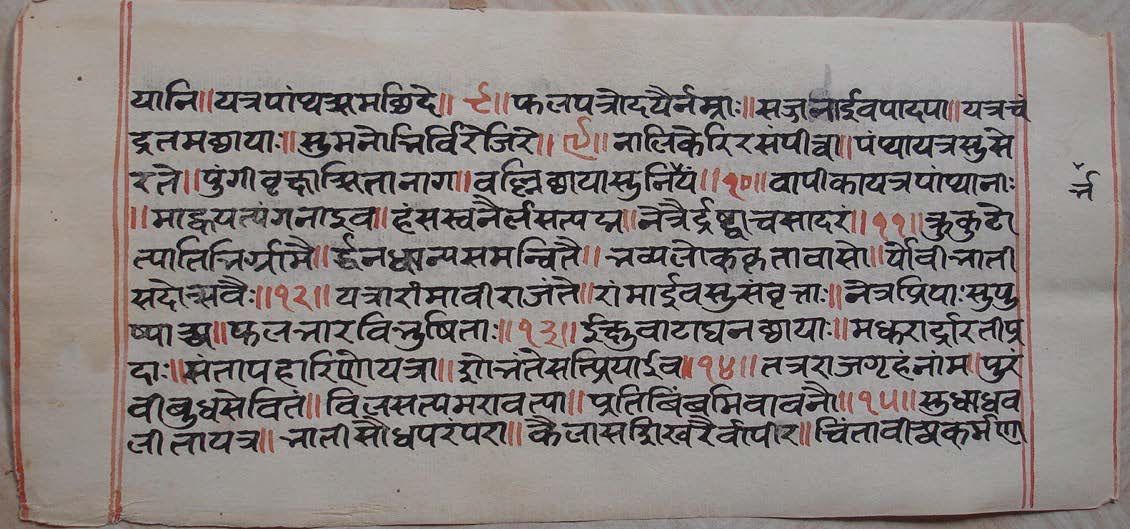 यानि॥यत्रपांथश्रमछिदे॥८॥फलपत्रोदयैर्नम्राः॥सज्जनाईवपादपा॥यत्रचं
द्रतमछायाः॥सुमनोभिर्विरेजिरे॥९॥नालिकेरिरसंपीत्वा॥पंथायत्रसुसे
रते॥पुंगीवृक्षाश्रितानागा॥वल्लिछायासुनिर्भयं॥१०॥वापीकायत्रपांथानाः
॥माह्वयत्पंगनाइव॥हंसस्वनैर्लसत्पद्म॥नेत्रैर्दृष्ट्वाचसादरं॥११॥कुकुटो
त्पातिभिर्ग्रामै॥र्द्धनधान्यसमन्वितै॥भव्यलोककृतावासो॥र्योवीभाती
सदोत्सवैः॥१२॥यत्रारांमावीराजंते॥रांमाईवसुसंवृत्ताः॥नेत्रप्रियाःसुपु
ष्पाश्च॥फलभारविभुषिताः॥१३॥ईक्षुवाटाघनछायाः॥मधुरार्द्रारतीप्र
दाः॥संतापहारिणोयत्रा॥शोभंतेसत्प्रियाईव॥१४॥तत्रराजगृहंनांम॥पुरं
वीबुधसेवितं॥विलसत्पमरावत्पा॥प्रतिबिंबमिवावनौ॥१५॥सुधाधव
लीतायत्र॥भातीसौधपरंपरा॥कैलासशिखरैर्वापीर॥चिंतावीश्वकर्मणा